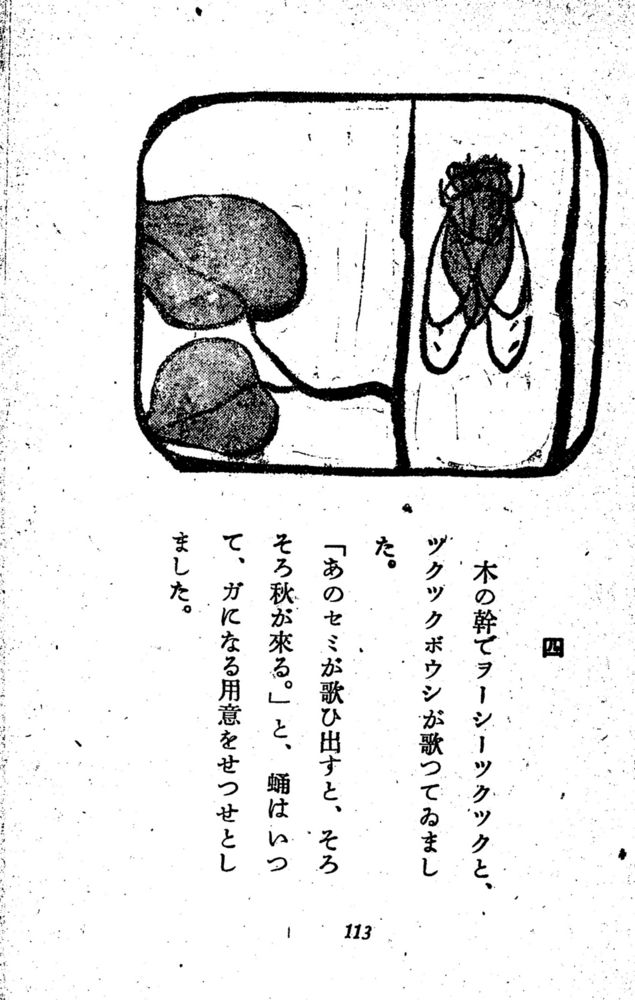 四
木の幹でヲーシーツクツクと、
ツクツクボウシが歌つてゐまし
た。
「あのセミが歌ひ出すと、そろ
そろ秋が來る。」と、蛹はいつ
て、ガになる用意をせつせとし
ました。
113